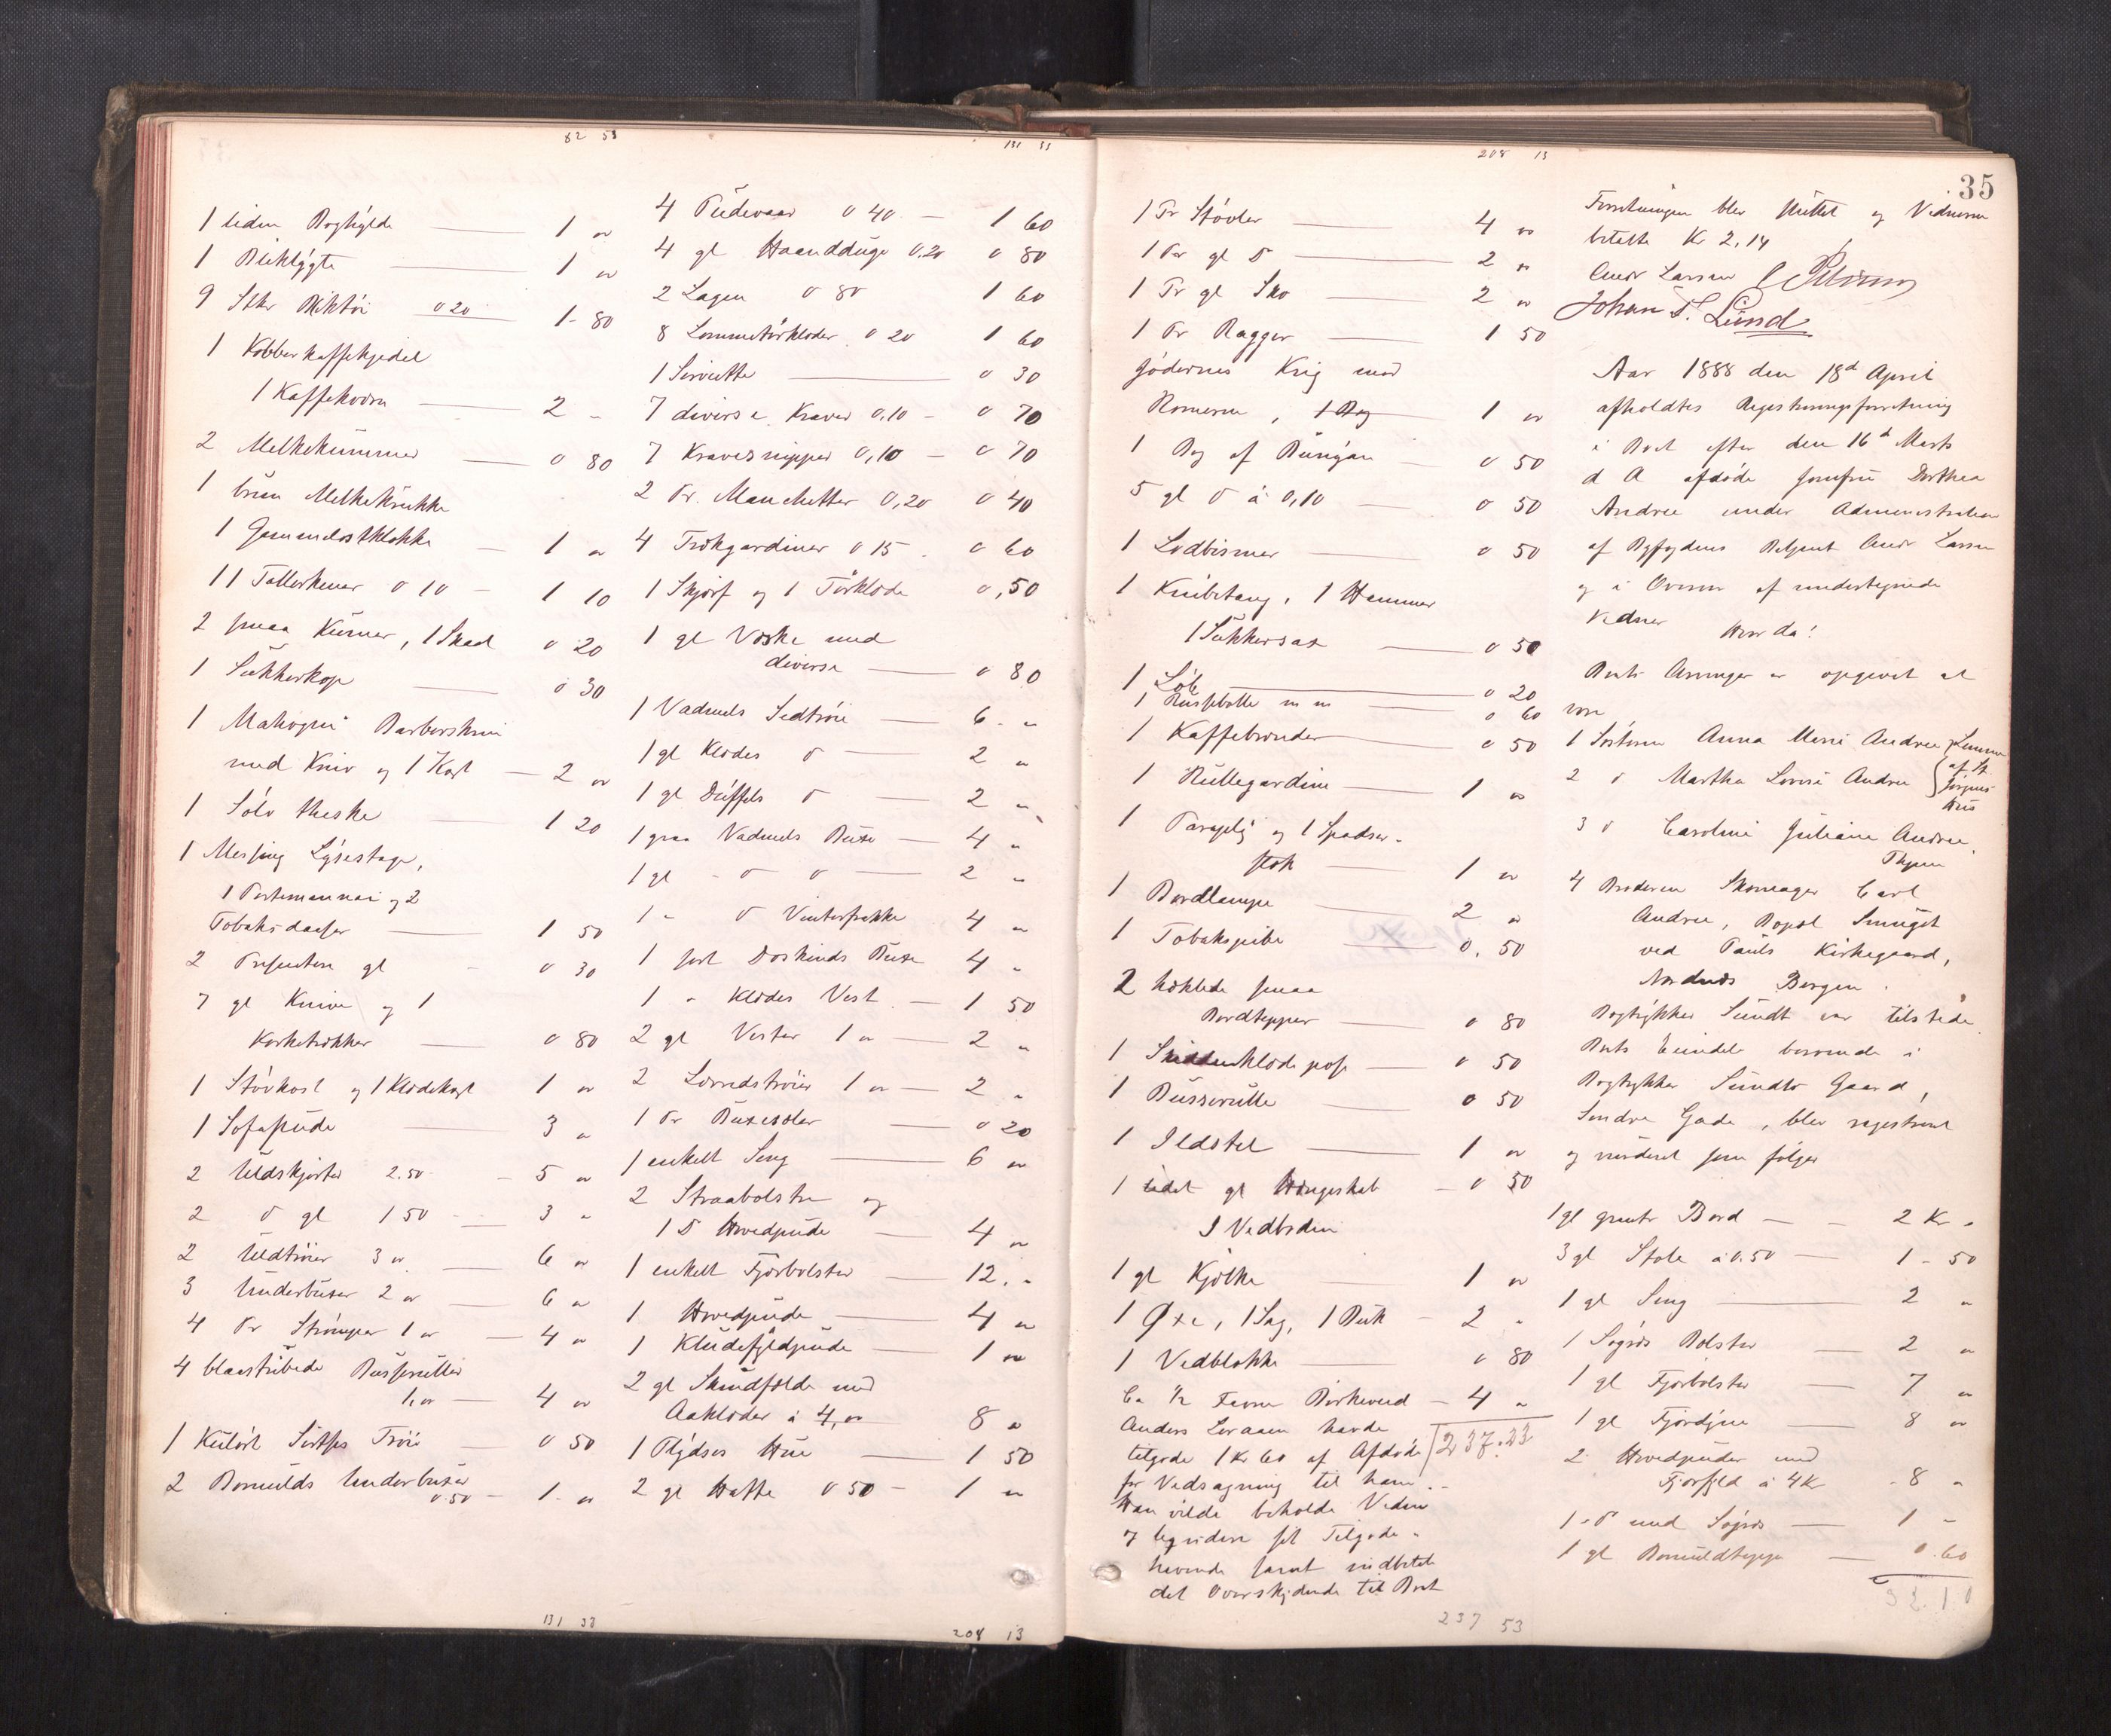 82 53
1 liden Boghylde — 1 „
1 Bliklygte — 1 „
9 Stkr Bliktøi 0 20 1 - 80
1 Kobberkaffekjedel
1 Kaffekværn — 2 „
2 Melkekummer — 0 80
1 brun Melkekrukke
1 Gammelostklokke — 1 „
11 Tallerkener 0 10 - 1 10
2 smaa Kurver, 1 Skaal 0 20
1 Sukkerkop — 0 30
1 Mahogni Barberskrin
med Kniv og 1 Kost — 2 „
1 Sølv theske — 1 20
1 Messing Lysestage,
1 Portemonnai og 2
Tobaksdaaser — 1 50
2 Presenter gl - 0 30
7 gl Knive og 1
Korketrækker — 0 80
1 Støvkost og 1 Klædekost 1 „
1 Sofapude — 3 „
2 Uldskjorter 2.50 - 5 „
2 d gl 1 50 - 3 „
2 Uldtrøier 3 „ — 6 „
3 Underbuxer 2 „ — 6 „
4 Pr Strømper 1 „ — 4 „
4 blaastribede Busseruller
1 „ — 4 „
1 Kulørt Trøie — 0 50
2 Bomulds Underbuxer
0.50 - 1 - „
131 33
131 33
4 Pudevaar 0 40 — 1 60
4 gl Haandduge 0,20 0 80
2 Lagen 0 80 1 60
8 Lommetørklæder 0 20 1 60
1 Serviette — 0 30
7 diverse Kraver 0,10 - 0 70
7 Kravesnipper 0,10 - 0 70
2 Pr. Manchetter 0,20 0 40
4 Trækgardiner 0 15 . 0 60
1 Skjærf og 1 Tørklæde 0,50
1 gl Væske med
diverse — 0 80
1 Vadmels Sedtrøie — 6 - „
1 gl Klædes d — 2 „
1 gl Duffels d — 2 „
1 graa Vadmels Buxe — 4 „
1 gl - d d — 2 „
1 „ d Vinterfrakke 4 „
1 sort Doskinds Buxe 4 „
1 „ Klædes Vest — 1 50
2 gl Vester 1 „ — 2 „
2 Lærredstrøier 1 „ — 2 „
1 Pr Buxeseler — 0 20
1 enkelt Seng — 6 „
2 Straabolstre og
1 d Hovedpude — 4 „
1 enkelt Fjærbolster — 12. „
1 Hovedpude — 4 „
1 Kludefyldpude — 1 „
2 gl Skindfelde med
Aaklæder á 4, „ 8 „
1 Plydses Hue — 1 50
2 gl Hatte 0 50 - 1 „
208 13
208 13
35
1 Pr Støvler — 4 „
1 Par gl d — 2 „
1 Pr gl Sko — 2 „
1 Pr Ragger — 1 50
Jødernes Krig mod
Romerne, 1 Bog 1 „
1 Bog af Bunyan — 0 50
5 gl d á 0,10 — 0 50
1 Lodbismer — 0 50
1 Knibetang, 1 Hammer
1 Sukkersax — 0 50
1 Løb — 0 20
1 m m — 0 60
1 Kaffebrænder — 0 50
1 Rullegardin — 1 „
1 Paraply og 1 Spadser-
stok — 1 „
1 Bordlampe — 2 „
1 Tobakspibe — 0.50
2 hæklede smaa
Bordtepper — 0 80
1 Skiddenklædepose — 0 50
1 Busserulle — 0 50
1 Ildstel — 1 „
1 lidet gl Hengeskab - 0 50
1 Vedbøden
1 gl Kjælke — 1 „
1 Øxe, 1 Sag, 1 Buk - 2 „
1 Vedblokke — 0 80
Ca ½ Favne Birkeved — 4 „
237.53
Anders Loraaen havde
tilgode 1 Kr 60 af Afdøde
for Vedsagning til ham.-
Han vilde beholde Veden
og sit Tilgode-
havende samt indbetale
det Overskydende til Boet
237 53
Forretningen blev sluttet og Vidnerne
betalte Kr 2,14
Andr Larsen
Johan T. Lund
Aar 1888 den 18d April
afholdtes Registreringsforretning
i Boet efter den 16d Marts
d A afdøde Jomfru Dorthea
Andree under Administration
af Byfogdens Betjent Andr Larsen
og i Overvær af undertegnede
Vidner Hvorda!
Boets Arvinger er opgivet at
være
1 Søsteren Anna Marie Andree } Lemmer
af St.
2 d Martha Lovise Andree Jørgens
Hus
3 d Caroline Juliane Andree,
4 Broderen Skomager Carl
Andree, Bopæl Smuget
ved Pauls Kirkegaard,
Nordnæs Bergen.
Bogtrykker Sundt var tilstede
Boets Eiendele beroende i
Bogtrykker Sundts Gaard,
Søndre Gade, blev registreret
og vurderet som følger
1 gl Bord — - 2 Kr „
3 gl Stole á 0.50 — 1 - 50
1 gl Seng — 2 „
1 Søgræs Bolster — 2 „
1 gl Fjærbolster — 7 „
1 gl Fjærdyne — 8 „
2 Hovedpuder med
Fjærfyld á 4 Kr - 8 „
1 - d med Søgræs — 1 „
1 gl Bomuldteppe — 0.60
32.10